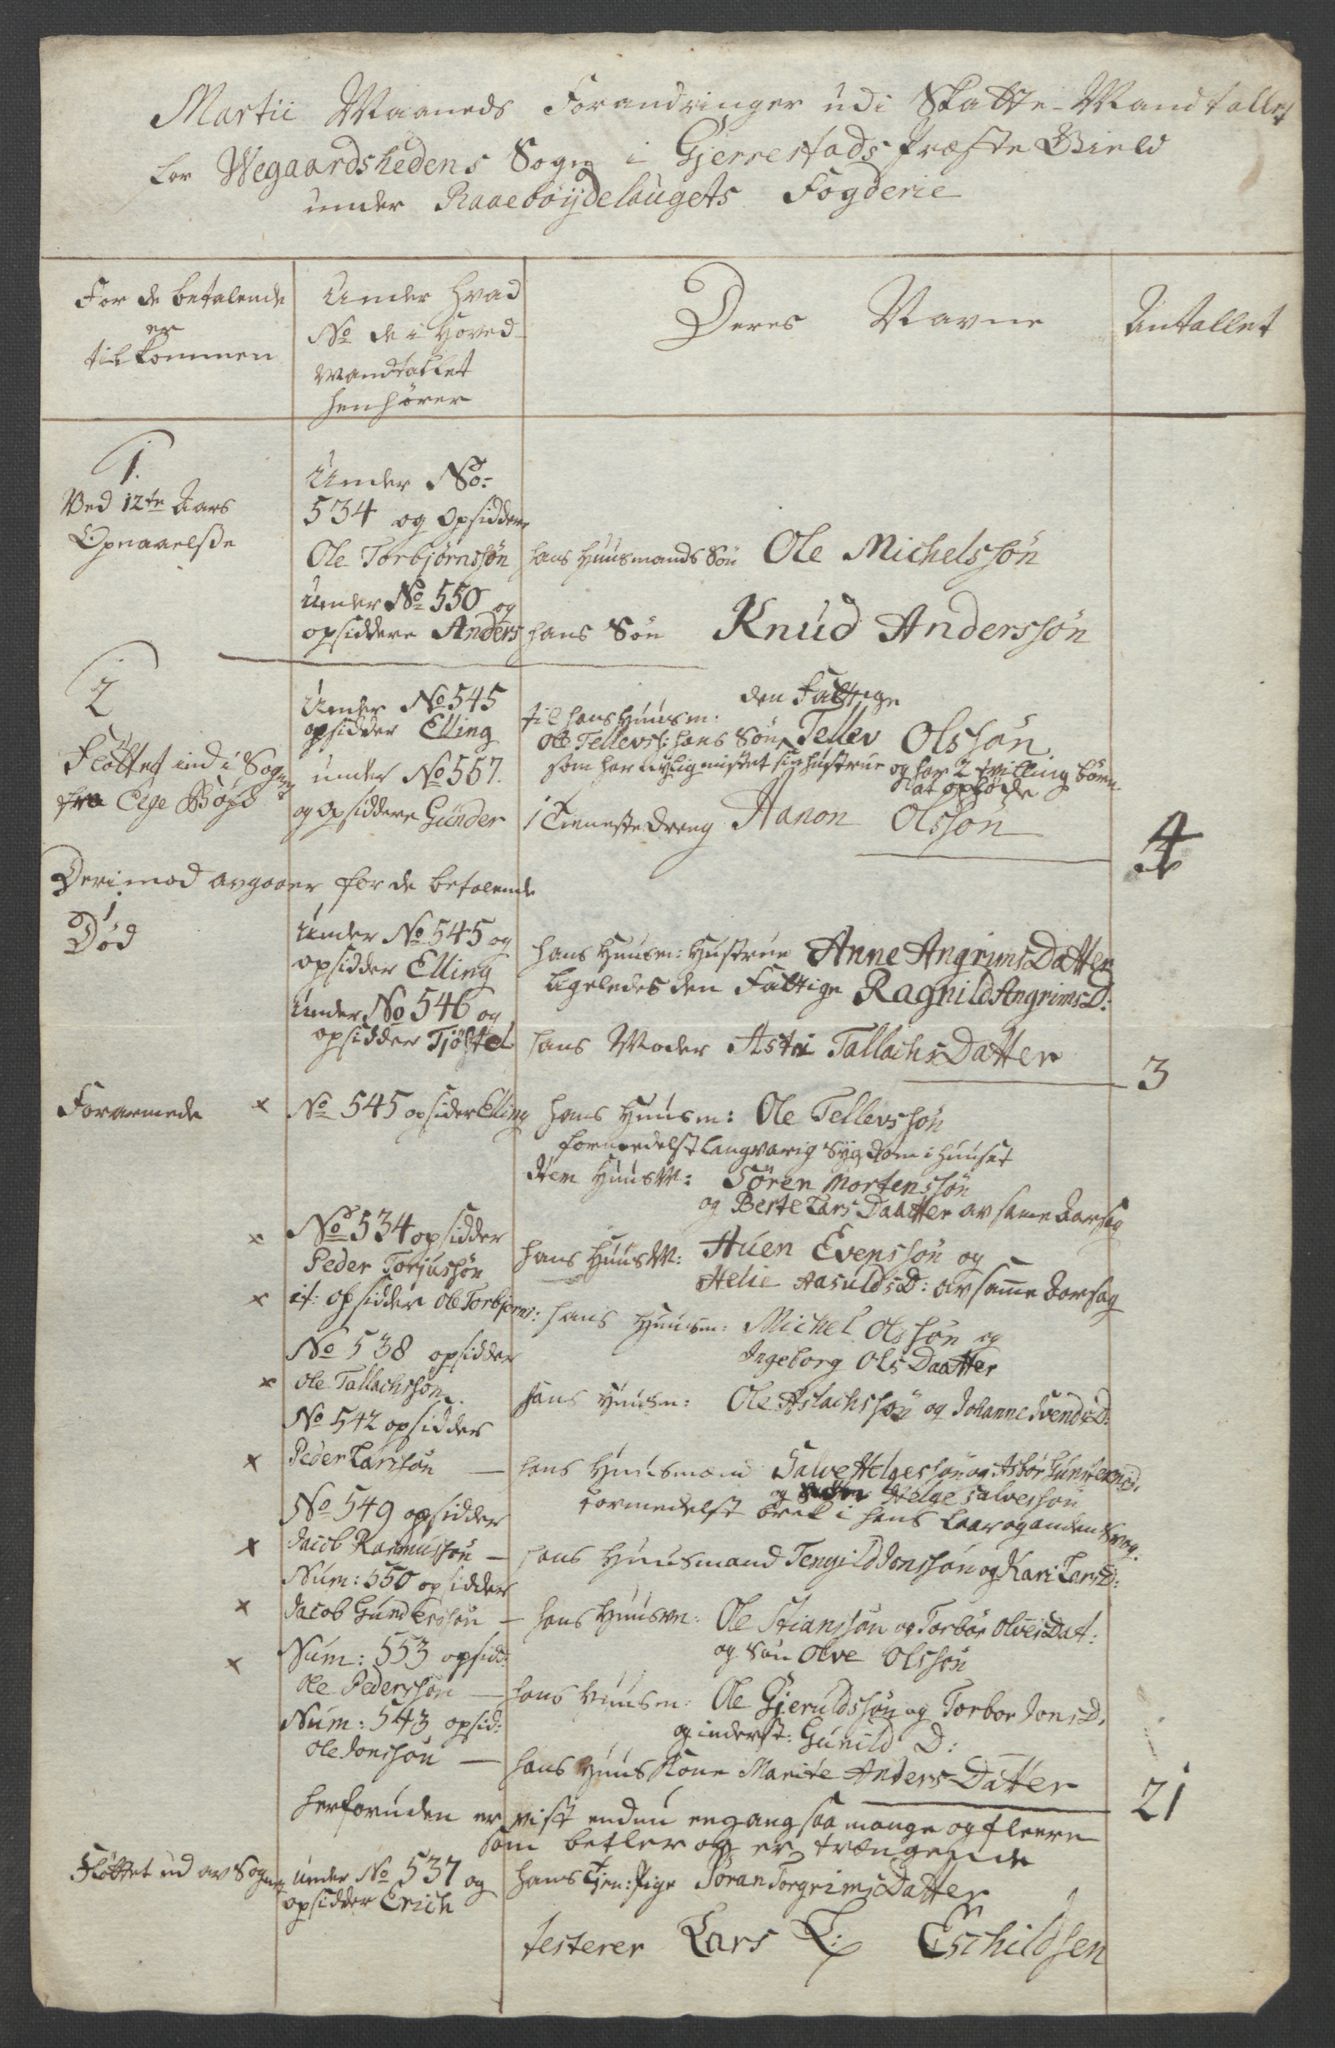 Martii Maaneds Forandringer udi Skatte-Mandtallet
for Wegaardshedens Sogn i Gjerrestads Præste Gield
under Raaebøydelaugets Fogderie
For de betalende
er
tilkommen
Under hvad
No de i Hoved-
Mandtallet
henhører
Deres Navne
Antallet
1.
Ved 12te Aars
Opnaaelse
Under No:
534 og Opsiddere
Ole Torbjørnssøn hans Huusmands Søn Ole Michelssøn
Under No 550 og
opsiddere Anders hans Søn Knud Anderssøn
2
Fløttet ind i Sognet
fra Eige Bøyd
Under No 545
opsidder Elling
den Fattige
til hans Huusm:
Ole Tellevs: hans Søn Tellev Olssøn
som har nylig mistet sin hustrue og har 2 tvilling børn
at opføde
under No 557.
og Opsiddere Gunder 1 Tieneste dreng Aanon Olssøn
4
Derimod avgaaer for de betalende
1
Død
Under No 545 og
opsidder Elling
hans Huusm: Hustrue Anne AngrimsDatter
ligeledes den Fattige Ragnild AngrimsD:
Under No 546 og
opsidder Tjøstel hans Moder Astri TallachsDatter
3
Forarmede
x No 545 opsider Elling hans Huusm: Ole Tellevssøn
formedelst langvarig Sygdom i Huuset
Item HuusM: Søren Mortenssøn
og Berte LarsDaatter av same Aarsag
x No 534 opsidder
Peder Torjussøn
hans HuusM: Auen Evenssøn og
Helie AasuldsD: av samme Aarsag
x it: opsidder Ole Torbjørns: hans Huusm: Michel Olssøn og
Ingeborg OlsDaatter
No 538 opsidder
x Ole Tallachssøn hans Huusm: Ole Aslachssøn og Johanne SvendsD:
No 542 opsidder
x Peder Larssøn — hans Huusmand Salve Helgessøn og Asbør GunstensD.
og Helge Salvessøn
formedelst bræk i hans Laar og anden Svag.
No 549 opsidder
x Jacob Rasmussøn — hans Huusmand Tengild Jonssøn og Kari LarsD:
Num: 550 opsidder
x Jacob Gunderssøn — hans Huusm: Ole Stianssøn og Torbør OlvesDat:
og Søn Olve Olssøn
x Num: 553 opsid:
Ole Pederssøn — hans Huusm: Ole Gjeruldssøn og Torbor JonsD.
og inderst: Gunild D:
Num: 543 opsid:
Ole Jonssøn — hans Huus Kone Marite AndersDatter
21
herforuden er vist endnu engang saa mange og fleere
som betler og er trængende
Fløttet ud av Sognet under No 537 og
opsidder Erich
hans Tjen: Pige Søran TorgrimsDatter
testerer Lars L: Eschildsen